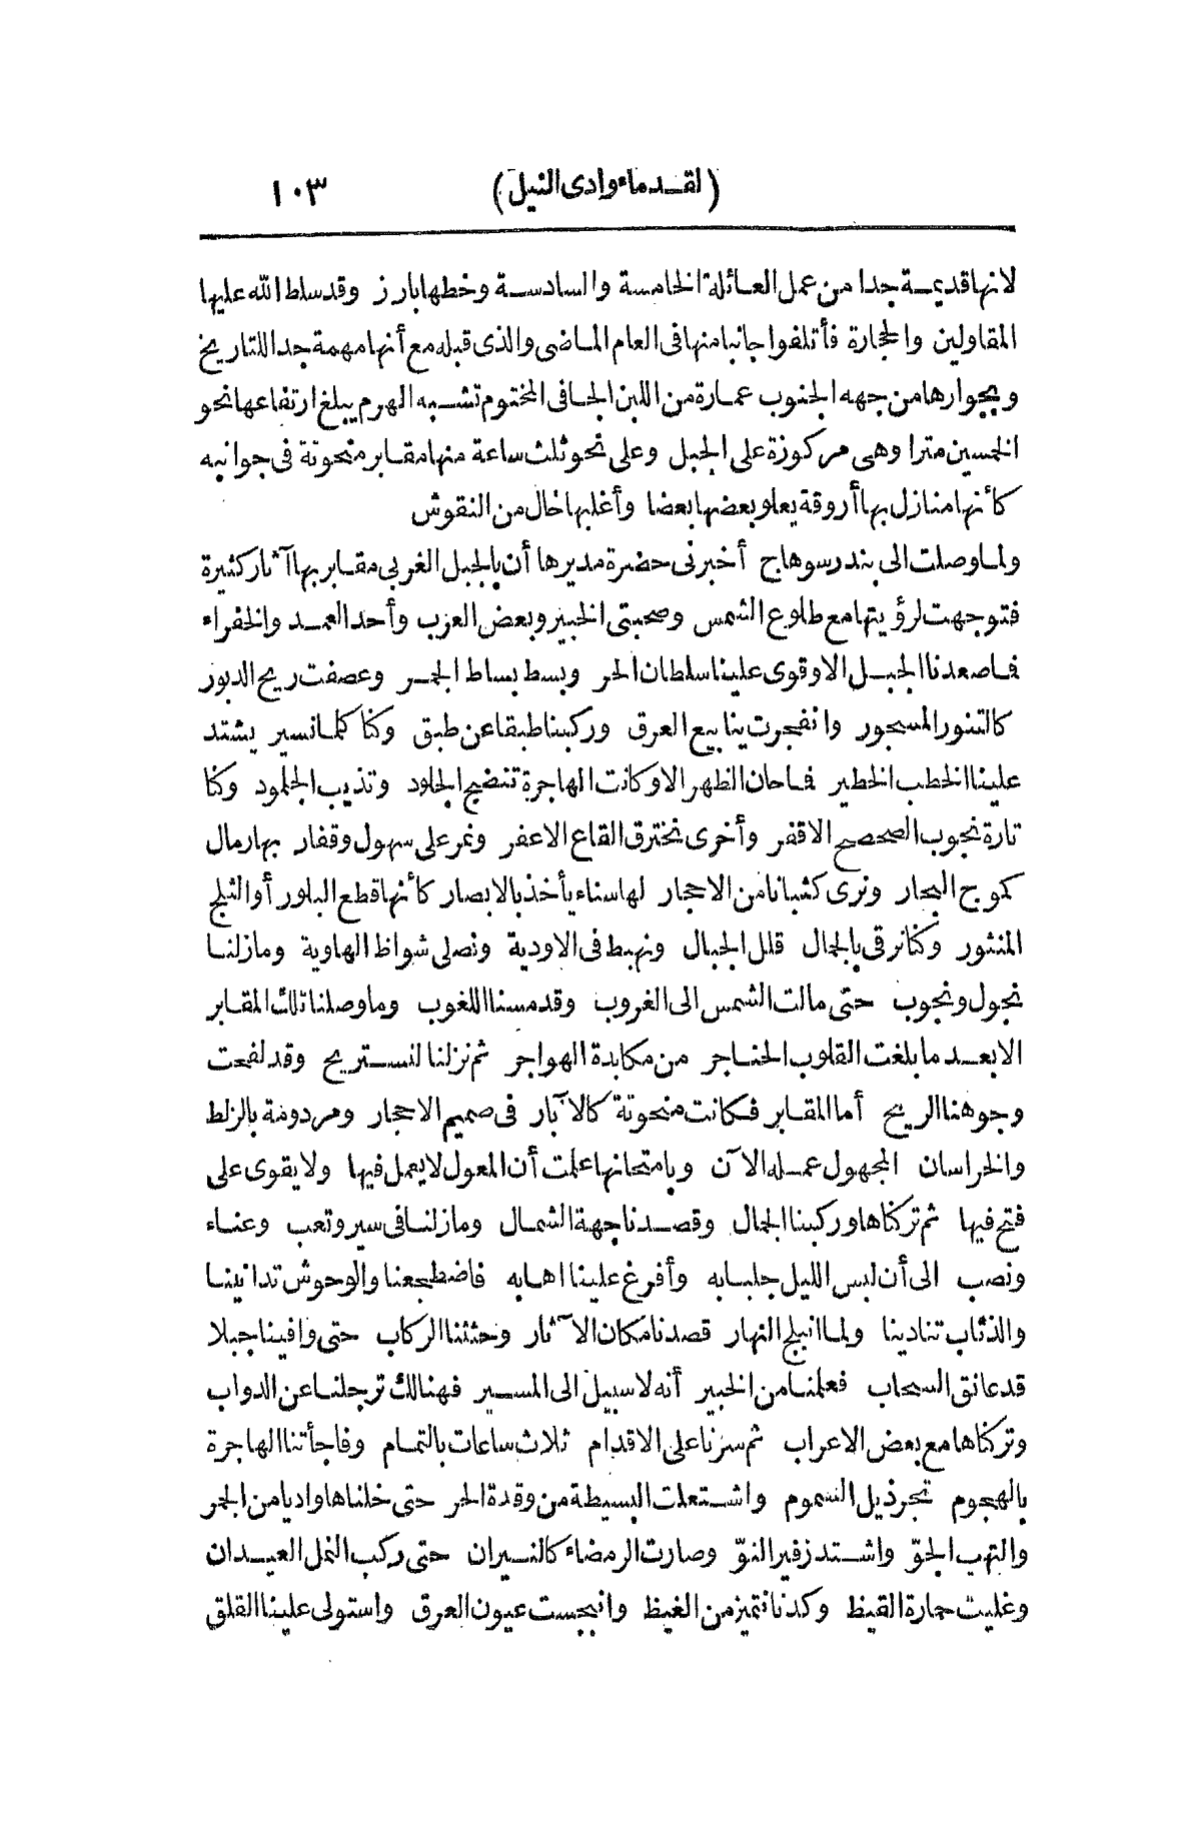 (لقدماء وادى النيل) ١٠٣
لانها قديمة جدا من عمل العائلة الخامسة والسادسة وخطها بارز وقد سلط الله عليها
المقاولين والحجارة فأتلفوا جانبا منها فى العام الماضى والذى قبله مع أنها مهمة جدا للتاريخ
وبجوارها من جهه الجنوب عمارة من اللبن الجافى المختوم تشبه الهرم يبلغ ارتفاعها نحو
الخمسين مترا وهى مركوزة على الجبل وعلى نحو ثلث ساعة منها مقابر منحوتة فى جوانبه
كأنها منازل بها أروقة يعلو بعضها بعضا وأغلبها خال من النقوش
ولما وصلت الى بندر سوهاج أخبرنى حضرة مديرها أن بالجبل الغربى مقابر بها آثار كثيرة
فتوجهت لرؤيتها مع طلوع الشمس وصحبتى الخبير وبعض العرب وأحد العمد والخفراء
فما صعدنا الجبل الا وقوى علينا سلطان الحر وبسط بساط الجمر وعصفت ريح الدبور
كالتنور المسجور وانفجرت ينابيع العرق وركبنا طبقا عن طبق وكنا كلما نسير يشتد
علينا الخطب الخطير فما حان الظهر الا وكانت الهاجرة تنضج الجلود وتذيب الجلمود وكنا
تارة نجوب الصحصح الاقفر وأخرى نخترق القاع الاعفر ونمر على سهول وقفار بها رمال
كموج البحار ونرى كثبانا من الاحجار لها سناء يأخذ بالابصار كأنها قطع البلور أو الثلج
المنثور وكنا نرقى بالجمال قلل الجبال ونهبط فى الاودية ونصلى شواظ الهاوية ومازلنا
نجول ونجوب حتى مالت الشمس الى الغروب وقد مسنا اللغوب وما وصلنا تلك المقابر
الا بعد ما بلغت القلوب الحناجر من مكابدة الهواجر ثم نزلنا لنستريح وقد لفحت
وجوهنا الريح أما المقابر فكانت منحوتة كالآبار فى صميم الاحجار ومردومة بالزلط
والخراسان المجهول عمله الآن وبامتحانها علمت أن المعول لا يعمل فيها ولا يقوى على
فتح فيها ثم تركناها وركبنا الجمال وقصدنا جهة الشمال ومازلنا فى سير وتعب وعناء
ونصب الى أن لبس الليل جلبابه وأفرغ علينا اهابه فاضطجعنا والوحوش تدانينا
والذئاب تنادينا ولما انبلج النهار قصدنا مكان الآثار وحثثنا الركاب حتى وافينا جبلا
قد عانق السحاب فعلمنا من الخبير أنه لا سبيل الى المسير فهنالك ترجلنا عن الدواب
وتركناها مع بعض الاعراب ثم سرنا على الاقدام ثلاث ساعات بالتمام وفاجأتنا الهاجرة
بالهجوم تجر ذيل السموم واشتعلت البسيطة من وقدة الحر حتى خلناها واديا من الجمر
والتهب الجوّ واشتد زفير النوّ وصارت الرمضاء كالنيران حتى ركب النمل العيدان
وغليت حمارة القيظ وكدنا نتميز من الغيظ وانبجست عيون العرق واستولى علينا القلق